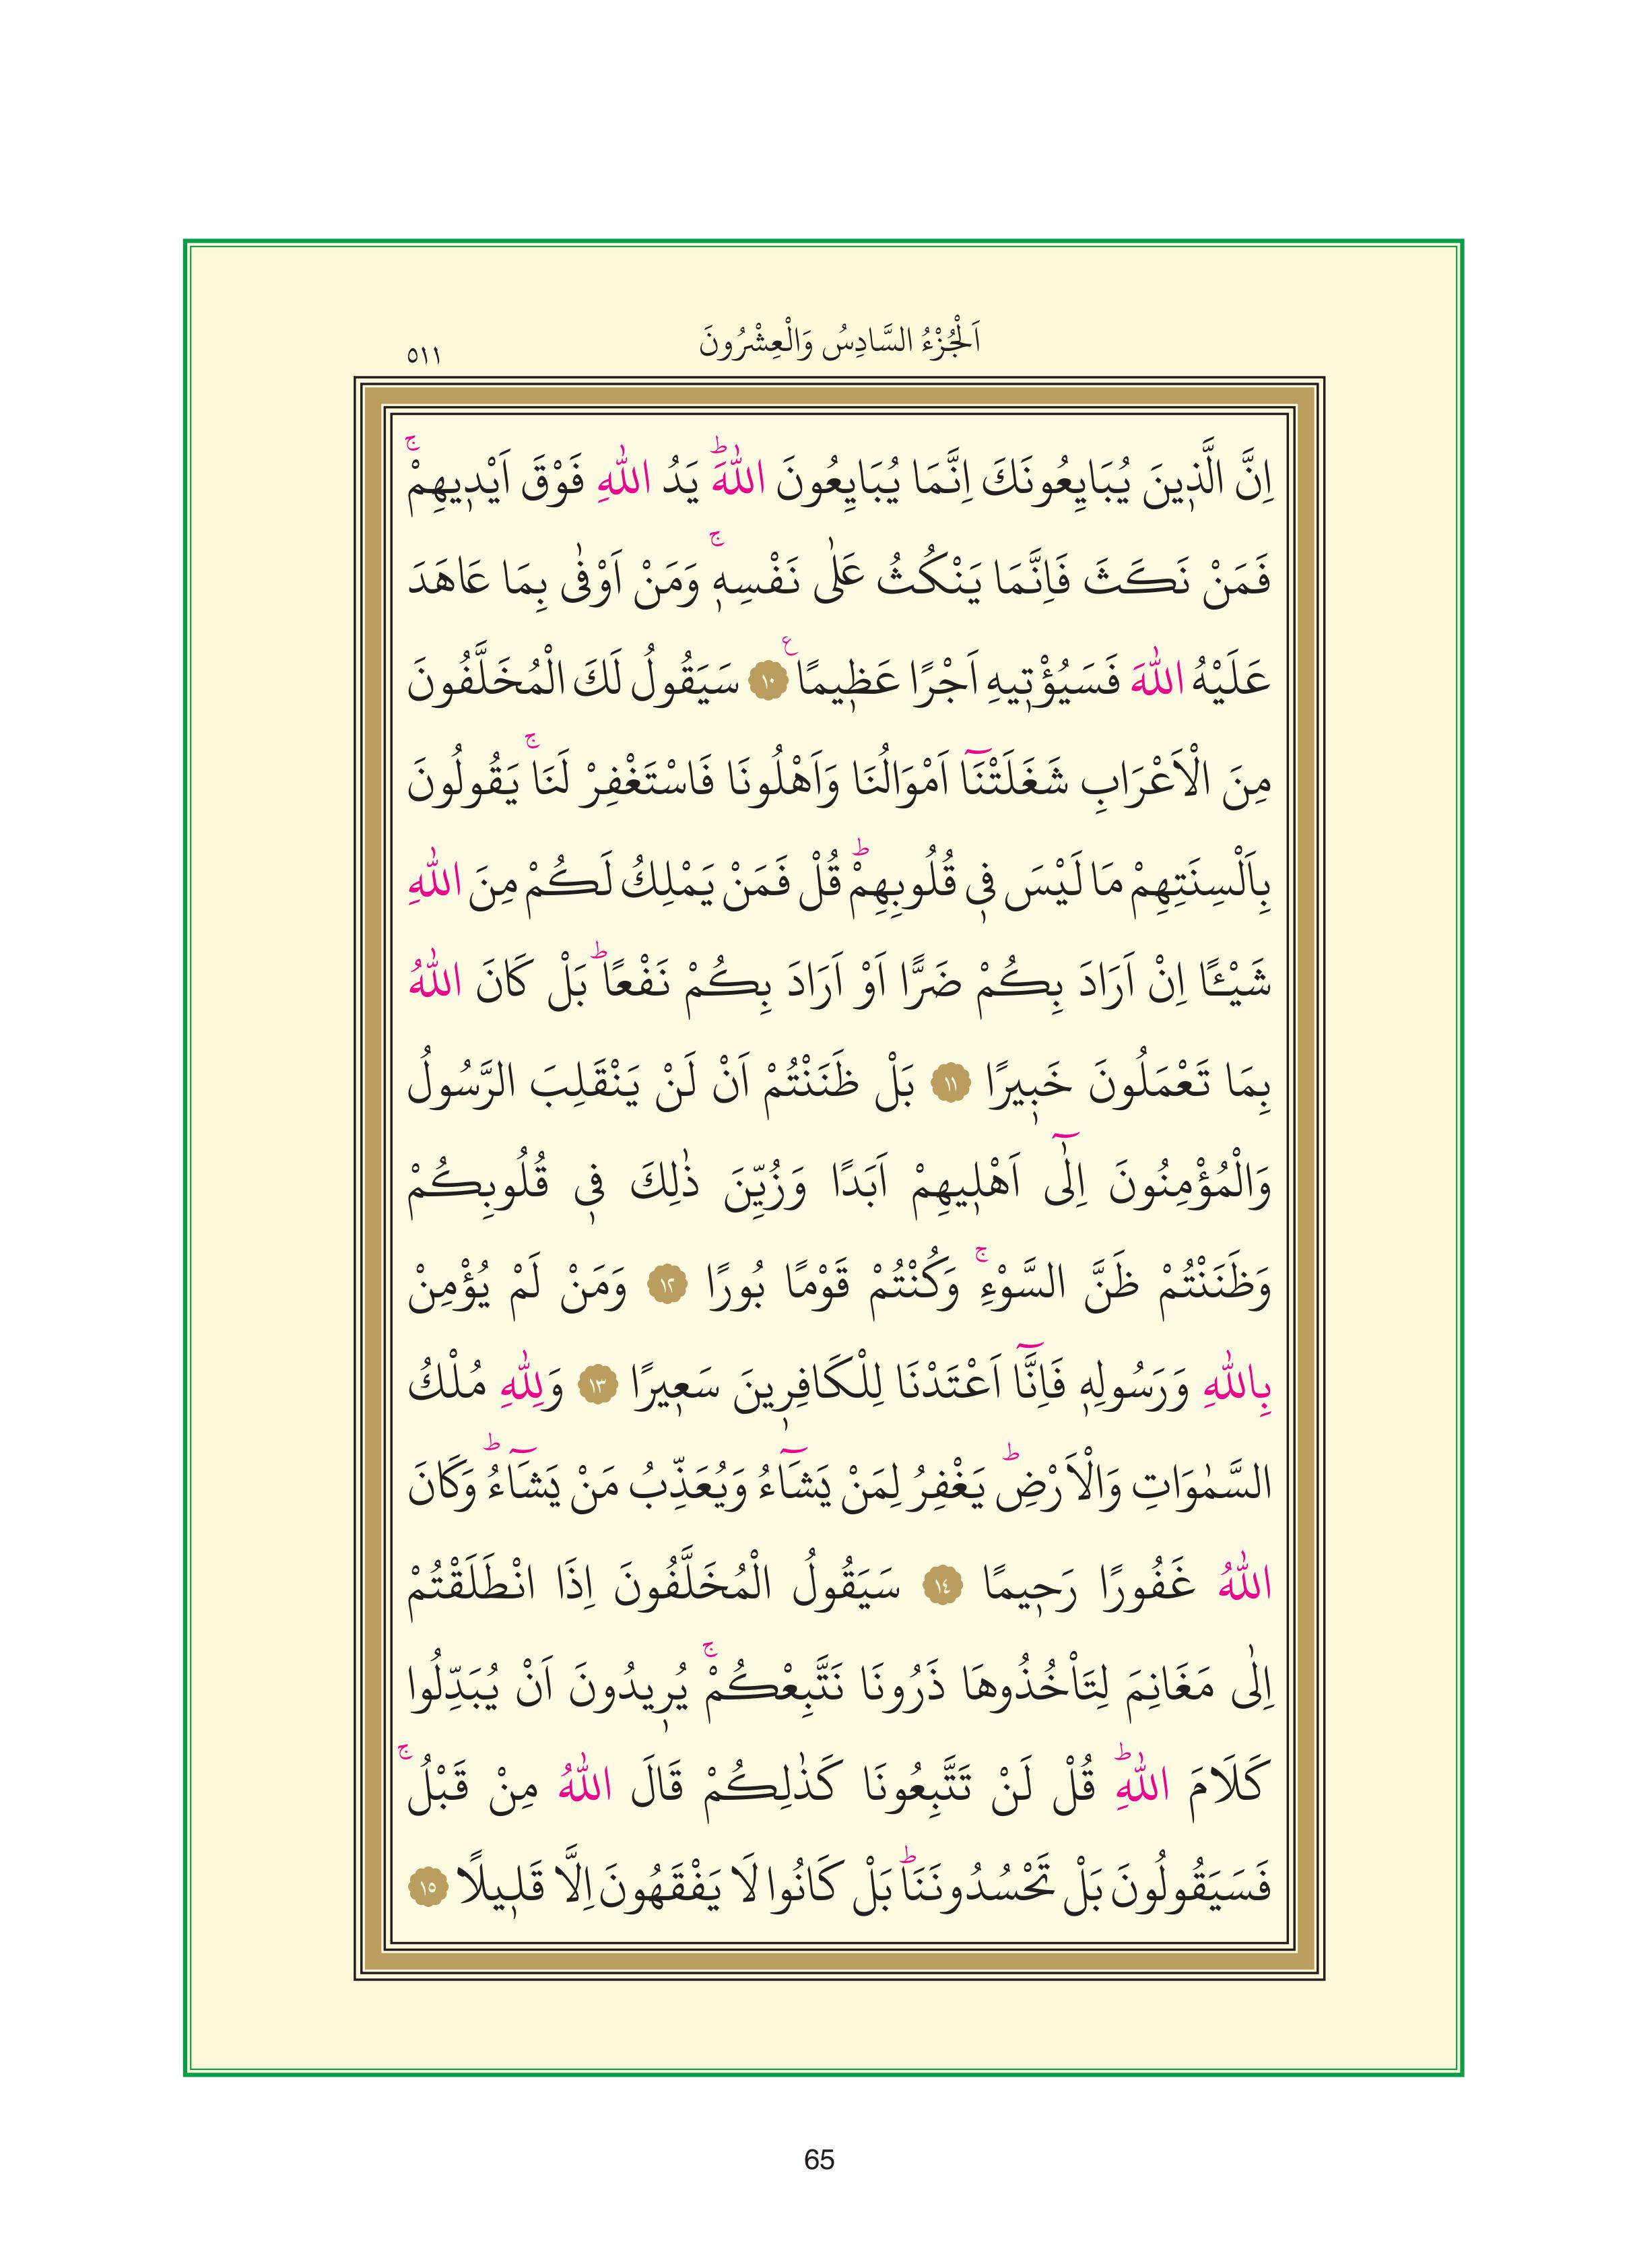 اَلْجُزْءُ السَّادِسُ وَالْعِشْرُونَ
٥١١
اِنَّ الَّذ۪ينَ يُبَايِعُونَكَ اِنَّمَا يُبَايِعُونَ اللّٰهَۜ يَدُ اللّٰهِ فَوْقَ اَيْد۪يهِمْۚ
فَمَنْ نَكَثَ فَاِنَّمَا يَنْكُثُ عَلٰى نَفْسِه۪ۚ وَمَنْ اَوْفٰى بِمَا عَاهَدَ
عَلَيْهُ اللّٰهَ فَسَيُؤْت۪يهِ اَجْرًا عَظ۪يمًاع ﴿١٠﴾ سَيَقُولُ لَكَ الْمُخَلَّفُونَ
مِنَ الْاَعْرَابِ شَغَلَتْنَٓا اَمْوَالُنَا وَاَهْلُونَا فَاسْتَغْفِرْ لَنَاۚ يَقُولُونَ
بِاَلْسِنَتِهِمْ مَا لَيْسَ ف۪ي قُلُوبِهِمْۜ قُلْ فَمَنْ يَمْلِكُ لَكُمْ مِنَ اللّٰهِ
شَيْـًٔا اِنْ اَرَادَ بِكُمْ ضَرًّا اَوْ اَرَادَ بِكُمْ نَفْعًاۜ بَلْ كَانَ اللّٰهُ
بِمَا تَعْمَلُونَ خَب۪يرًا ﴿١١﴾ بَلْ ظَنَنْتُمْ اَنْ لَنْ يَنْقَلِبَ الرَّسُولُ
وَالْمُؤْمِنُونَ اِلٰٓى اَهْل۪يهِمْ اَبَدًا وَزُيِّنَ ذٰلِكَ ف۪ي قُلُوبِكُمْ
وَظَنَنْتُمْ ظَنَّ السَّوْءِۚ وَكُنْتُمْ قَوْمًا بُورًا ﴿١٢﴾ وَمَنْ لَمْ يُؤْمِنْ
بِاللّٰهِ وَرَسُولِه۪ فَاِنَّٓا اَعْتَدْنَا لِلْكَافِر۪ينَ سَع۪يرًا ﴿١٣﴾ وَلِلّٰهِ مُلْكُ
السَّمٰوَاتِ وَالْاَرْضِۜ يَغْفِرُ لِمَنْ يَشَٓاءُ وَيُعَذِّبُ مَنْ يَشَٓاءُۜ وَكَانَ
اللّٰهُ غَفُورًا رَح۪يمًا ﴿١٤﴾ سَيَقُولُ الْمُخَلَّفُونَ اِذَا انْطَلَقْتُمْ
اِلٰى مَغَانِمَ لِتَأْخُذُوهَا ذَرُونَا نَتَّبِعْكُمْۚ يُر۪يدُونَ اَنْ يُبَدِّلُوا
كَلَامَ اللّٰهِۜ قُلْ لَنْ تَتَّبِعُونَا كَذٰلِكُمْ قَالَ اللّٰهُ مِنْ قَبْلُۚ
فَسَيَقُولُونَ بَلْ تَحْسُدُونَنَاۜ بَلْ كَانُوا لَا يَفْقَهُونَ اِلَّا قَل۪يلًا ﴿١٥﴾
65